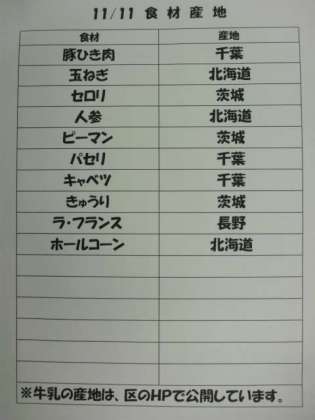 11/11 食材産地
食材 産地
豚ひき肉 千葉
玉ねぎ 北海道
セロリ 茨城
人参 北海道
ピーマン 茨城
パセリ 千葉
キャベツ 千葉
きゅうり 茨城
ラ・フランス 長野
ホールコーン 北海道
※牛乳の産地は、区のHPで公開しています。